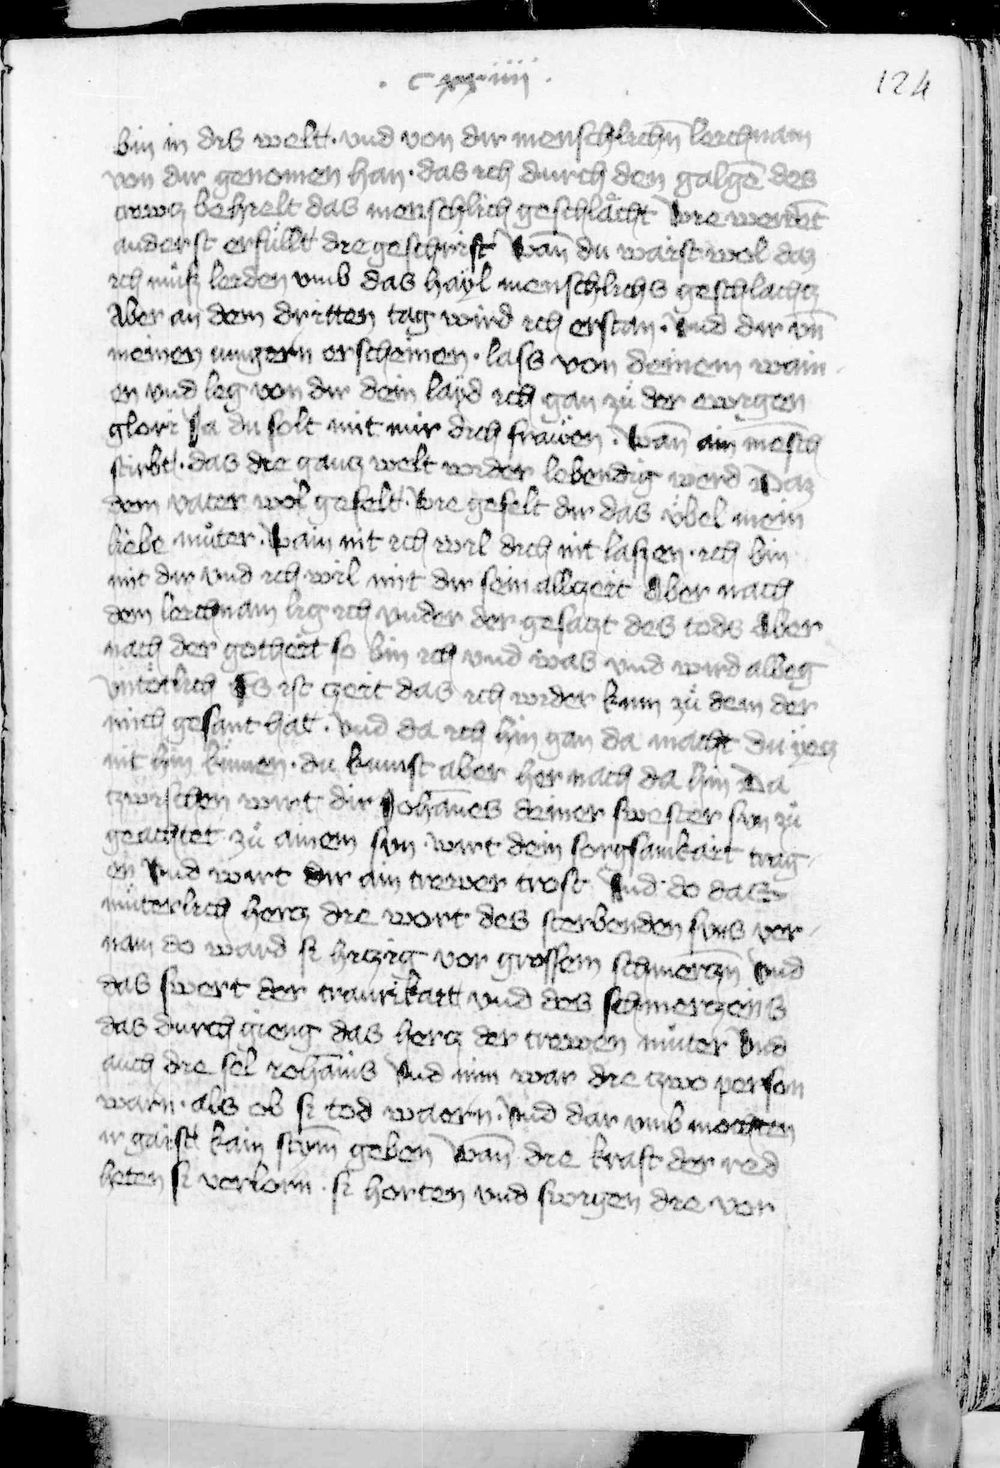 . c xx iiii .
124
bin in dis welt . vnd von dir menschlichn̄ leichnam
von dir genomen han . das ich durch den galgē des
crewcz behielt das menschlich geschlächt Wie werdēt
anderst erfüllt die geschrift Wan̄ du waist wol daz
ich mu̇ß leiden vmb das hayl menschlichs geschlächtz
Aber an dem dritten tag wird ich erstan . Vnd dir vn̄
meinen jungern erscheinen . lass von deinem wain
en vnd leg von dir dein layd ich gan zu̇ der ewigen
glori Ja du solt mit mir dich fräwen . Wan̄ ain mēsch
stirbt . das die gancz welt wider lebendig werd Daz
dem vater wol gefelt . Wie gefelt dir das v̇bel mein
liebe mu̇ter . Wain nit ich wil dich nit lassen . ich bin
mit dir vnd ich wil mit dir sein allczeit Aber nach
dem leichnam lig ich vnder der gesaczt des tods Aber
nach der gotheit so bin ich vnd was vnd wird alleg
vntötlich Es ist czeit das ich wider kum zu̇ dem der
mich gesant hat . Vnd da ich hin gan da macht du yecz
nit hin kumen . du kumst aber her nach da hin Da
czwischen wirt dir Johānes deiner swester sun zu̇
geachtet zu̇ ainem sun . wirt dein sorgsamkait trag
en Vnd wirt dir ain trewer trost Vnd do das
mu̇terlich hercz die wort des sterbenden suns ver
nam do ward si hiczig vor grossem schmerczn̄ Vnd
das swert der traurikait vnd des schmerczens
das durch gieng das hercz der trewen mu̇ter Vnd
auch die sel iohānis Vnd nun war die czwo person
warn . als ob si tod waern . Vnd dar vmb mochten
ir gaist kain stym̄ geben Wan̄ die kraft der red
heten si verlorn . si horten vnd swigen die vor